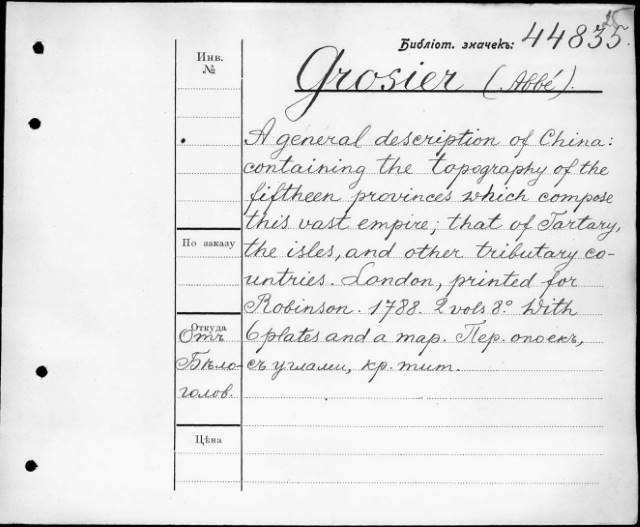 Библіот. значекъ: 44835.
Инв.
№
Grosier (Abbé).
A general description of China:
containing the topography of the
fiftheen provinces which compose
this vast empire; that of Tartary,
По заказу
the isles, and other tributary co-
untries. London, printed for
Robinson. 1788. 2 vols 8° With
Откуда
Отъ
6 plates and a map. Пер. опоекъ,
Бѣло-
съ углами, кр. тит.
голов.
Цѣна